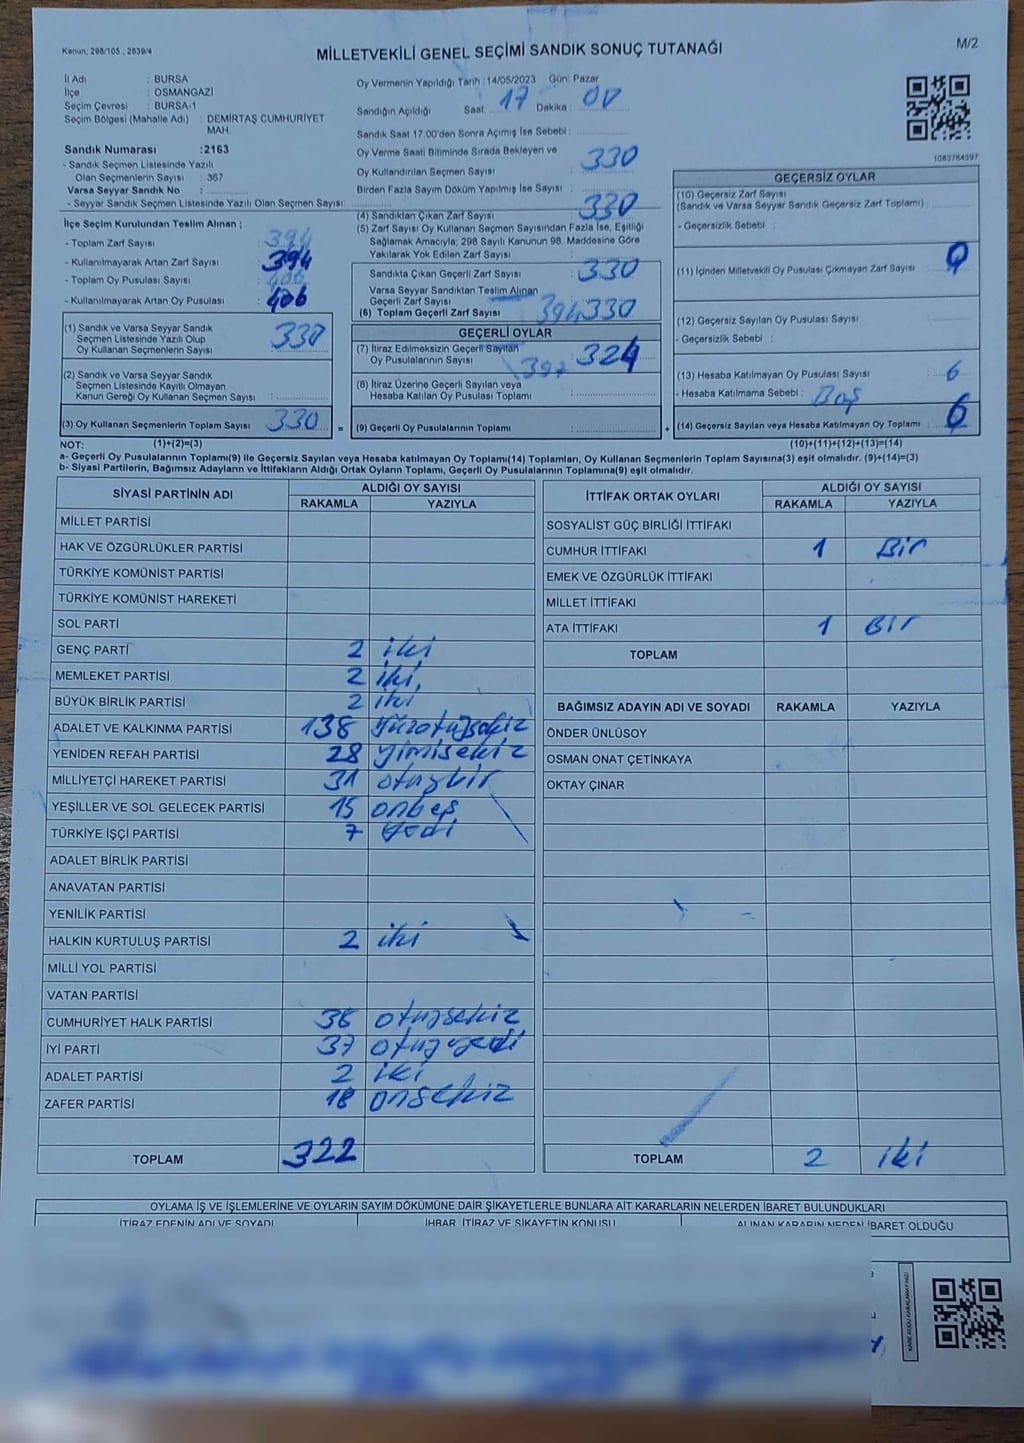 Kanun; 298/105 , 2839/4
MİLLETVEKİLİ GENEL SEÇİMİ SANDIK SONUÇ TUTANAĞI
M/2
İl Adı : BURSA
İlçe : OSMANGAZİ
Seçim Çevresi : BURSA-1
Seçim Bölgesi (Mahalle Adı) : DEMİRTAŞ CUMHURİYET
MAH.
Sandık Numarası :2163
- Sandık Seçmen Listesinde Yazılı
Olan Seçmenlerin Sayısı : 367
Varsa Seyyar Sandık No :
- Seyyar Sandık Seçmen Listesinde Yazılı Olan Seçmen Sayısı:
Oy Vermenin Yapıldığı Tarih : 14/05/2023 Gün: Pazar
Sandığın Açıldığı Saat: 17 Dakika : 00
Sandık Saat 17.00'den Sonra Açımış İse Sebebi :
Oy Verme Saati Bitiminde Sırada Bekleyen ve
Oy Kullandırılan Seçmen Sayısı : 330
Birden Fazla Sayım Döküm Yapılmış İse Sayısı :
1083764397
İlçe Seçim Kurulundan Teslim Alınan ;
- Toplam Zarf Sayısı : 394
- Kullanılmayarak Artan Zarf Sayısı : 394
- Toplam Oy Pusulası : 406
- Kullanılmayarak Artan Oy Pusulası : 406
(1) Sandık ve Varsa Seyyar Sandık
Seçmen Listesinde Yazılı Olup
Oy Kullanan Seçmenlerin Sayısı : 330
(2) Sandık ve Varsa Seyyar Sandık
Seçmen Listesinde Kayıtlı Olmayan
Kanun Gereği Oy Kullanan Seçmen Sayısı :
(3) Oy Kullanan Seçmenlerin Toplam Sayısı : 330
(4) Sandıktan Çıkan Zarf Sayısı : 330
(5) Zarf Sayısı Oy Kullanan Seçmen Sayısından Fazla İse, Eşitliği
Sağlamak Amacıyla; 298 Sayılı Kanunun 98. Maddesine Göre
Yakılarak Yok Edilen Zarf Sayısı :
Sandıkta Çıkan Geçerli Zarf Sayısı : 330
Varsa Seyyar Sandıktan Teslim Alınan
Geçerli Zarf Sayısı :
(6) Toplam Geçerli Zarf Sayısı : 394 330
GEÇERLİ OYLAR
(7) İtiraz Edilmeksizin Geçerli Sayılan
Oy Pusulalarının Sayısı : 397 324
(8) İtiraz Üzerine Geçerli Sayılan veya
Hesaba Katılan Oy Pusulası Toplamı :
= (9) Geçerli Oy Pusulalarının Toplamı : +
GEÇERSİZ OYLAR
(10) Geçersiz Zarf Sayısı
(Sandık ve Varsa Seyyar Sandık Geçersiz Zarf Toplamı) :
- Geçersizlik Sebebi :
(11) İçinden Milletvekili Oy Pusulası Çıkmayan Zarf Sayısı :
(12) Geçersiz Sayılan Oy Pusulası Sayısı :
- Geçersizlik Sebebi :
(13) Hesaba Katılmayan Oy Pusulası Sayısı : 6
- Hesaba Katılmama Sebebi : Boş
(14) Geçersiz Sayılan veya Hesaba Katılmayan Oy Toplamı : 6
NOT: (1)+(2)=(3) (10)+(11)+(12)+(13)=(14)
a- Geçerli Oy Pusulalarının Toplamı(9) ile Geçersiz Sayılan veya Hesaba katılmayan Oy Toplamı(14) Toplamları, Oy Kullanan Seçmenlerin Toplam Sayısına(3) eşit olmalıdır. (9)+(14)=(3)
b- Siyasi Partilerin, Bağımsız Adayların ve İttifakların Aldığı Ortak Oyların Toplamı, Geçerli Oy Pusulalarının Toplamına(9) eşit olmalıdır.
SİYASİ PARTİNİN ADI ALDIĞI OY SAYISI
RAKAMLA YAZIYLA
MİLLET PARTİSİ
HAK VE ÖZGÜRLÜKLER PARTİSİ
TÜRKİYE KOMÜNİST PARTİSİ
TÜRKİYE KOMÜNİST HAREKETİ
SOL PARTİ
GENÇ PARTİ 2 iki
MEMLEKET PARTİSİ 2 iki
BÜYÜK BİRLİK PARTİSİ 2 iki
ADALET VE KALKINMA PARTİSİ 138 yüzotuzsekiz
YENİDEN REFAH PARTİSİ 28 yimisekiz
MİLLİYETÇİ HAREKET PARTİSİ 31 otuzbir
YEŞİLLER VE SOL GELECEK PARTİSİ 15 onbeş
TÜRKİYE İŞÇİ PARTİSİ 7 yedi
ADALET BİRLİK PARTİSİ
ANAVATAN PARTİSİ
YENİLİK PARTİSİ
HALKIN KURTULUŞ PARTİSİ 2 iki
MİLLİ YOL PARTİSİ
VATAN PARTİSİ
CUMHURİYET HALK PARTİSİ 38 otuzsekiz
İYİ PARTİ 37 otuzyedi
ADALET PARTİSİ 2 iki
ZAFER PARTİSİ 18 onsekiz
TOPLAM 322
İTTİFAK ORTAK OYLARI ALDIĞI OY SAYISI
RAKAMLA YAZIYLA
SOSYALİST GÜÇ BİRLİĞİ İTTİFAKI
CUMHUR İTTİFAKI 1 Bir
EMEK VE ÖZGÜRLÜK İTTİFAKI
MİLLET İTTİFAKI
ATA İTTİFAKI 1 Bir
TOPLAM
BAĞIMSIZ ADAYIN ADI VE SOYADI RAKAMLA YAZIYLA
ÖNDER ÜNLÜSOY
OSMAN ONAT ÇETİNKAYA
OKTAY ÇINAR
TOPLAM 2 iki
OYLAMA İŞ VE İŞLEMLERİNE VE OYLARIN SAYIM DÖKÜMÜNE DAİR ŞİKAYETLERLE BUNLARA AİT KARARLARIN NELERDEN İBARET BULUNDUKLARI
İTİRAZ EDENİN ADI VE SOYADI İHBAR, İTİRAZ VE ŞİKAYETİN KONUSU ALINAN KARARIN NEDEN İBARET OLDUĞU
KARE KODU KARALAMAYINIZ!